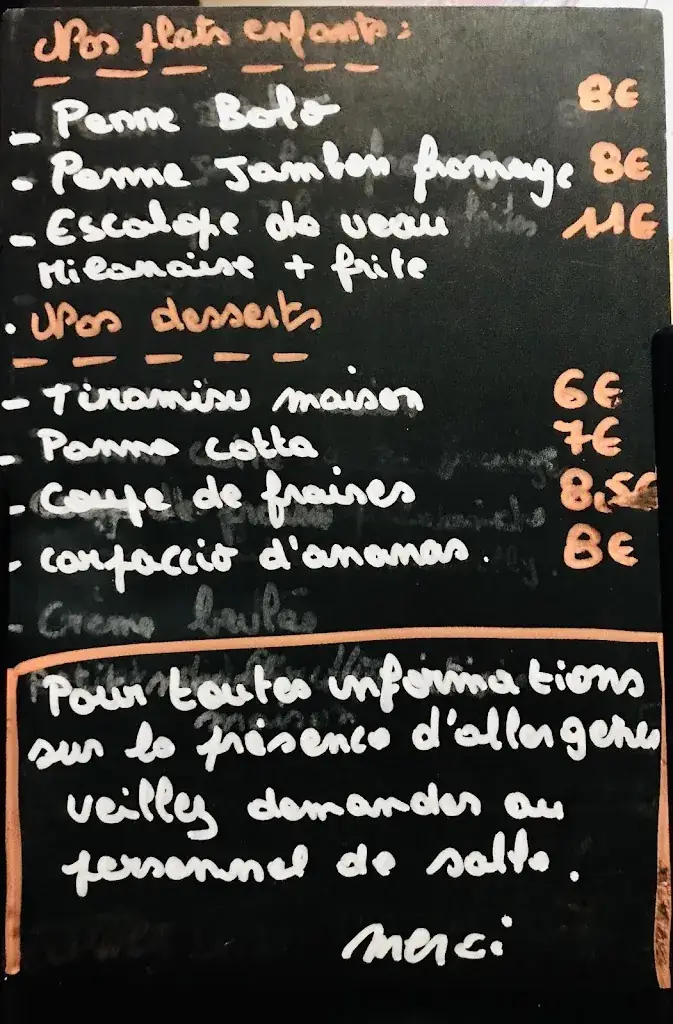 Nos plats enfants :
- Penne Bolo 8€
- Penne Jambon fromage 8€
- Escalope de veau 11€
Milanaise + frite
. Nos desserts
- Tiramisu maison 6€
- Panna cotta 7€
- Coupe de fraises 8,5€
- carpaccio d'ananas. 8€
- Crème brulée
Pour toutes informations
sur la présence d'allergenes
veillez demander au
personnel de salle.
merci